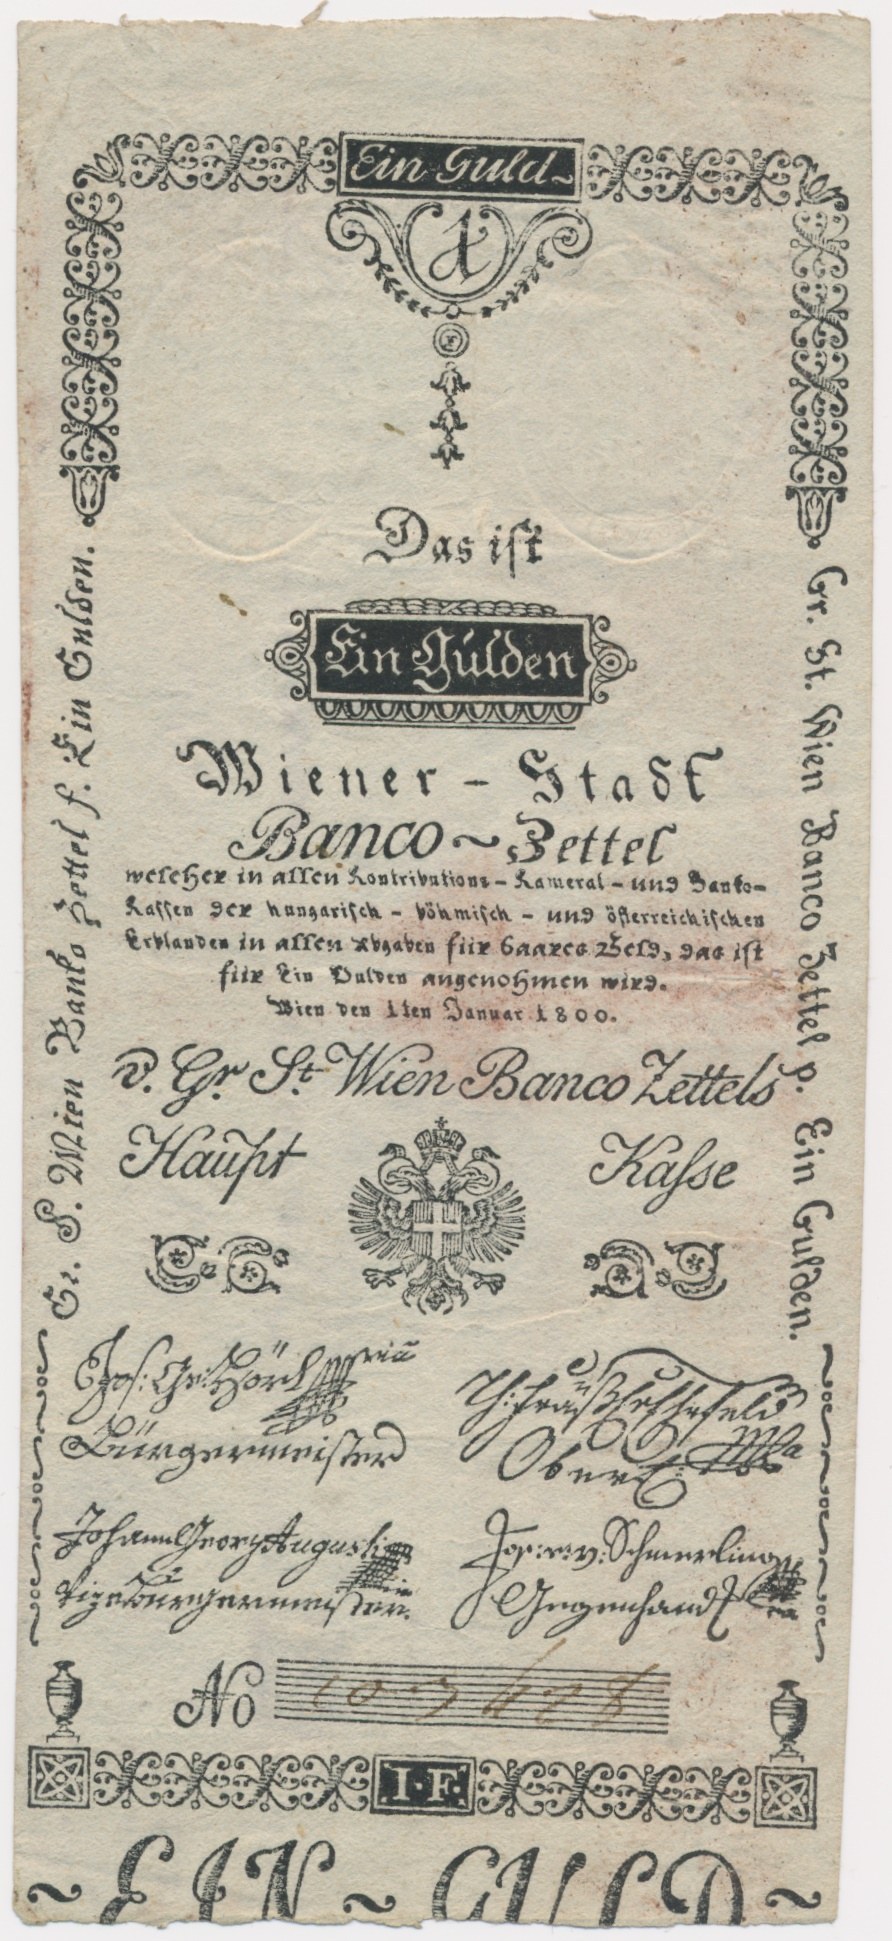 Ein Guld~
1
Das ist
Ein Gulden
Wiener - Stadt
Banco ~ Zettel
welcher in allen Kontributions - Kameral - und Banko-
Kassen der hungarisch - böhmisch - und österreichischen
Erblanden in allen Abgaben für baares Geld, das ist
für Ein Gulden angenohmen wird.
Wien den 1ten Januar 1800.
v. Gr. St. Wien Banco Zettels
Haupt Kasse
Gr. S. Wien Banko Zettel f. Ein Gulden.
Gr. St. Wien Banco Zettel p. Ein Gulden.
Jos: Ge: Hörl
Bürgermeister
Ober
Johann Georg Augusti
vizeBürgermeister.
Jos: v: Schmerling
Gegenhand
No
I·F.
~ EIN ~ GULD ~